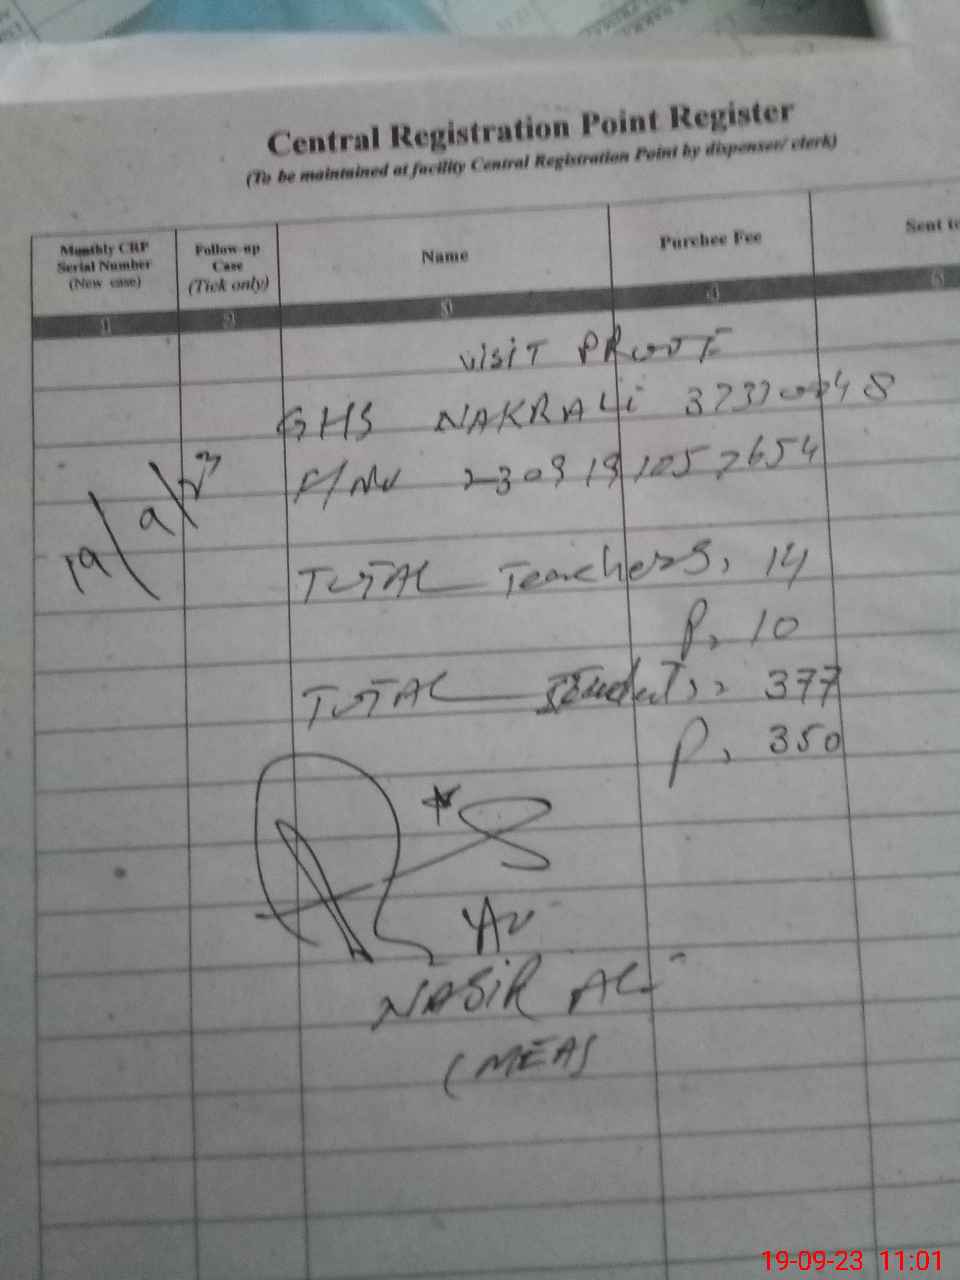 Central Registration Point Register
(To be maintained at facility Central Registration Point by dispenser/ clerk)
Monthly CRP Serial Number (New case)
Follow-up Case (Tick only)
Name
Purchee Fee
Sent to
1 2 3 4 5
VISIT PROOF
GHS NAKRALi 37370048
F/No 230919 1052654
19/9/23
TOTAL Teachers, 14
P, 10
TOTAL Students, 377
P, 350
NASiR ALi
(MEA)
19-09-23 11:01